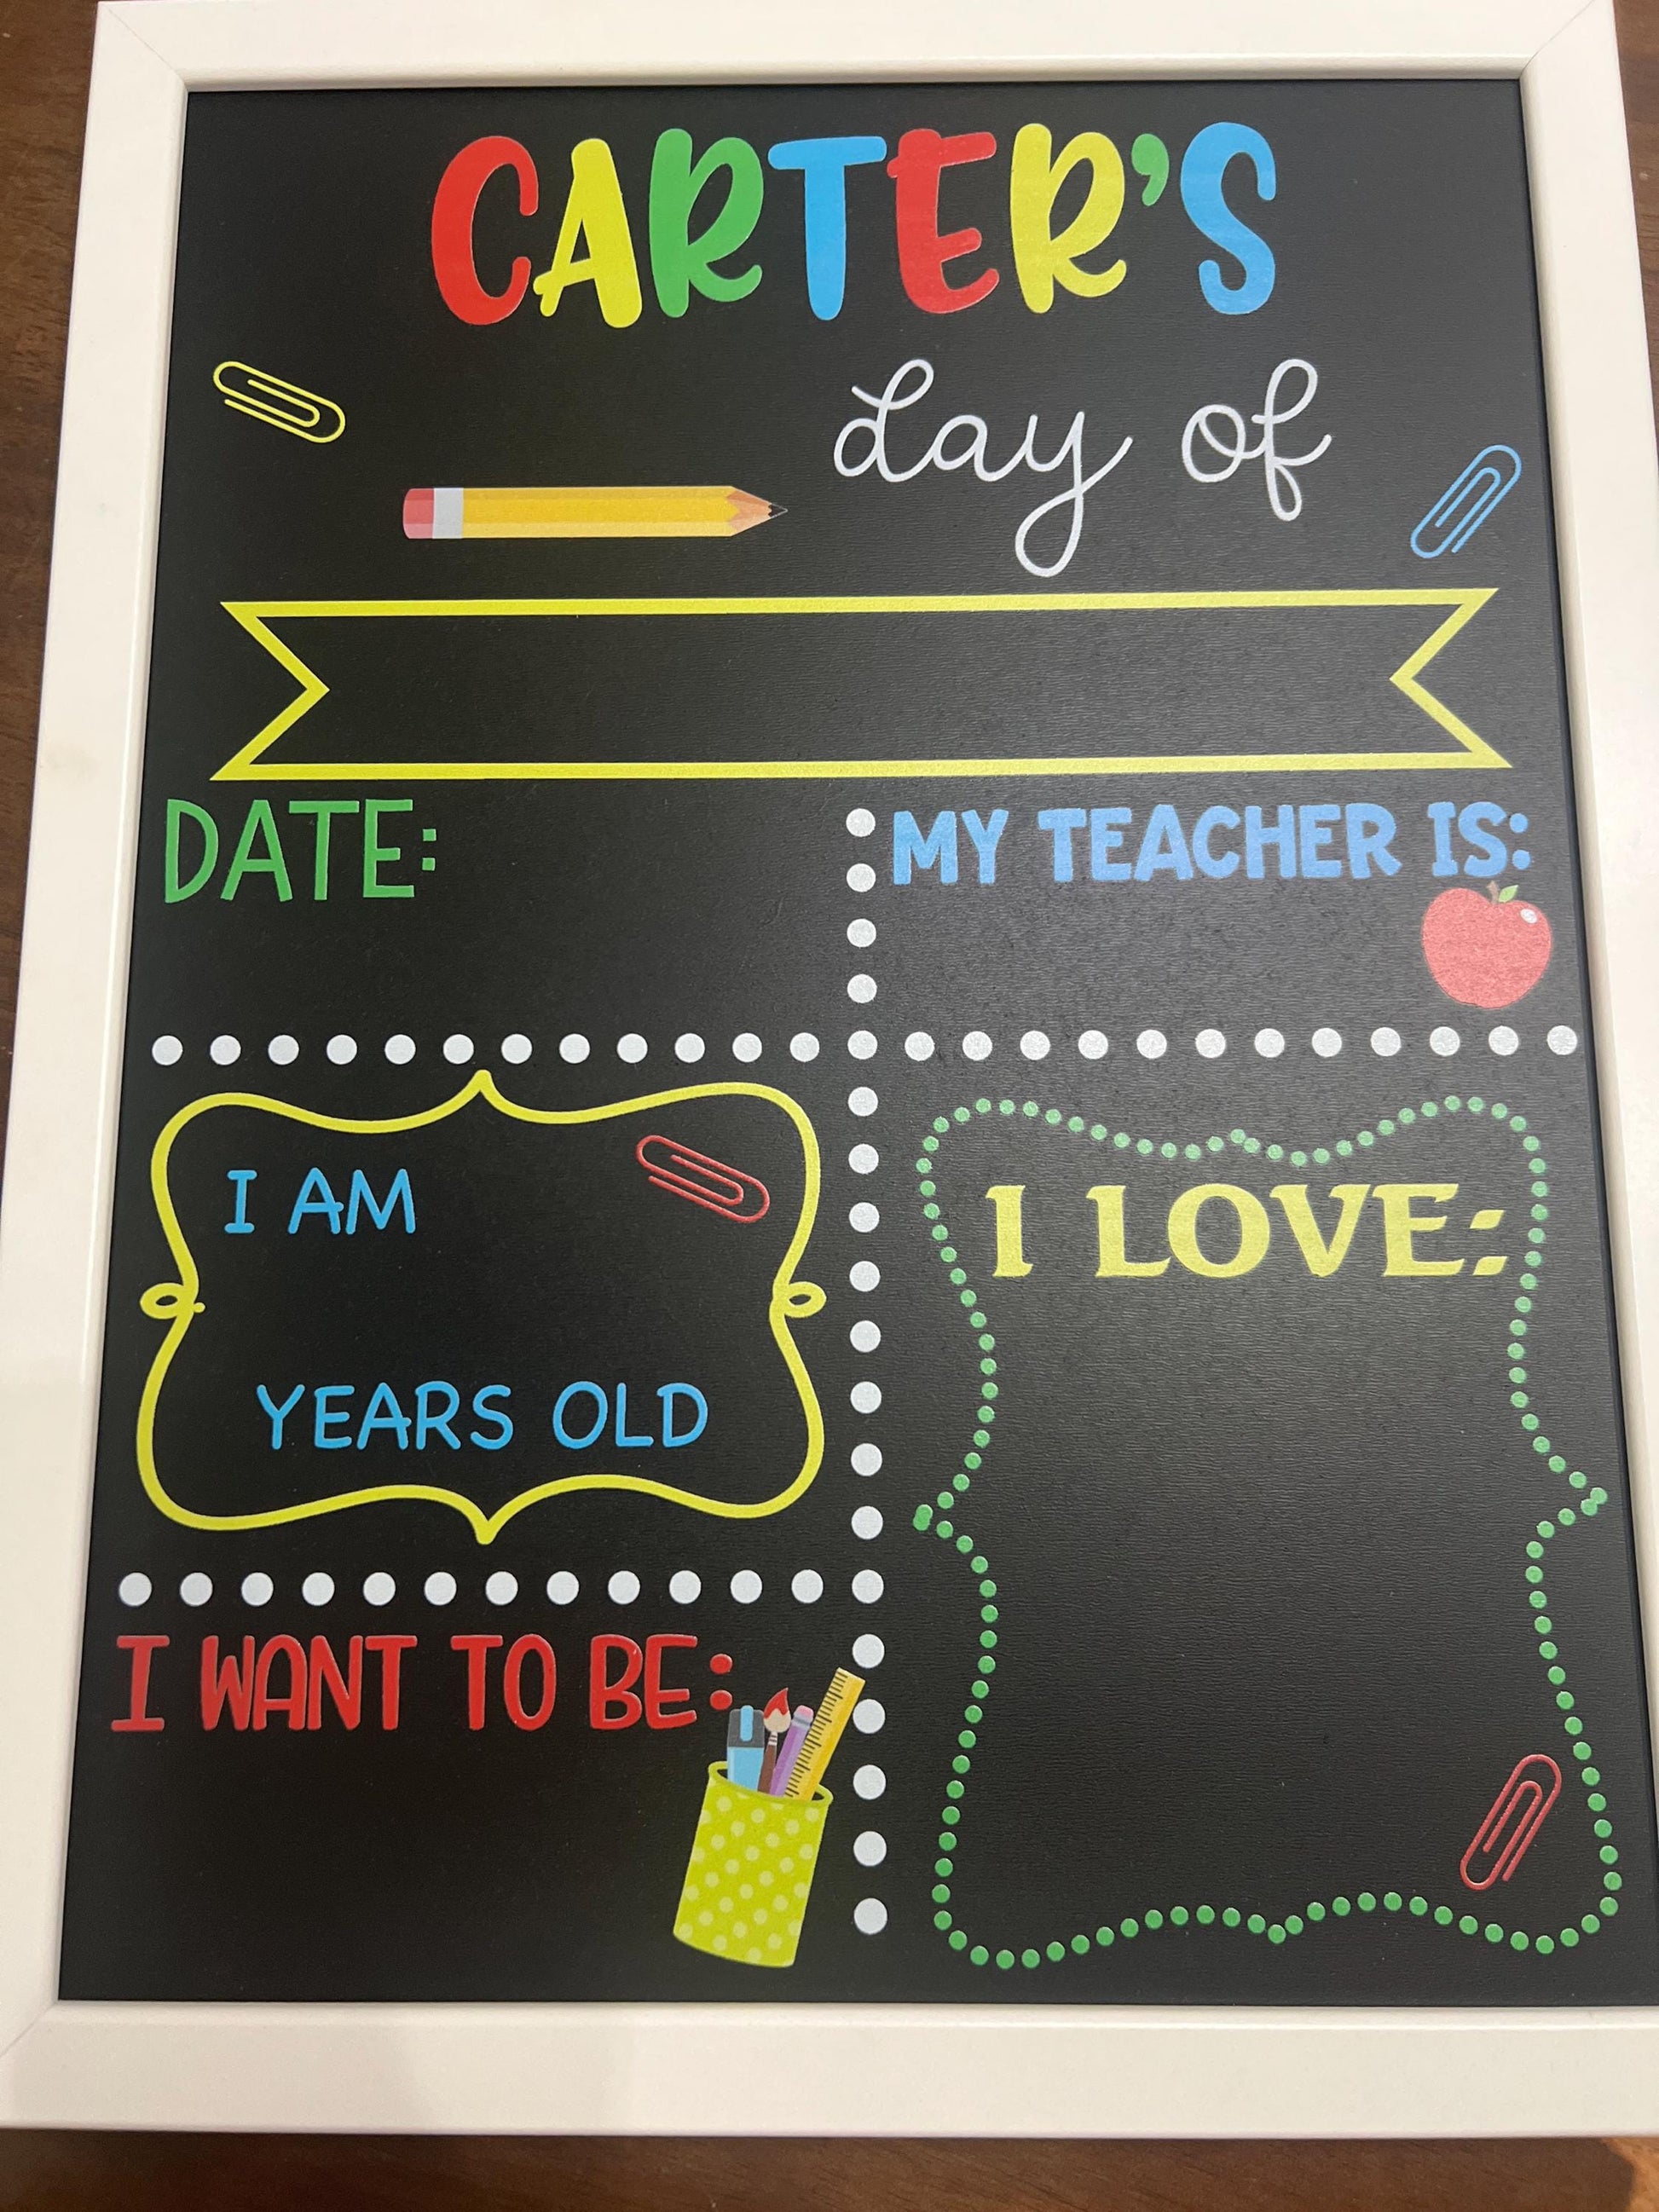 CARTER'S
day of
DATE:
MY TEACHER IS:
I AM
YEARS OLD
I LOVE:
I WANT TO BE: